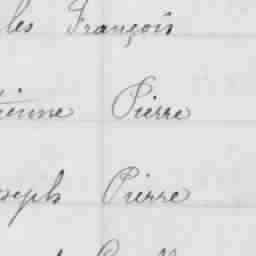 les François
tienne Pierre
oseph Pierre